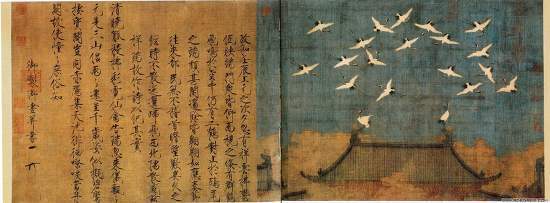 政和壬辰上元之次夕忽有祥雲拂鬱
低映端門衆皆仰而視之倏有群鶴
飛鳴於空中仍有二鶴對止於鴟尾
之端頗甚閑適餘皆翺翔如應奏節
往來都民無不稽首瞻望歎異久之
經時不散迤邐歸飛西北隅散感茲
祥瑞故作詩以紀其實
清曉觚稜拂彩霓仙禽告瑞忽來儀飄飄
元是三山侶兩兩還呈千歲姿似擬碧鸞
棲寶閣豈同赤雁集天池徘徊嘹唳當丹
闕故使憧憧庶俗知
御製御畫并書